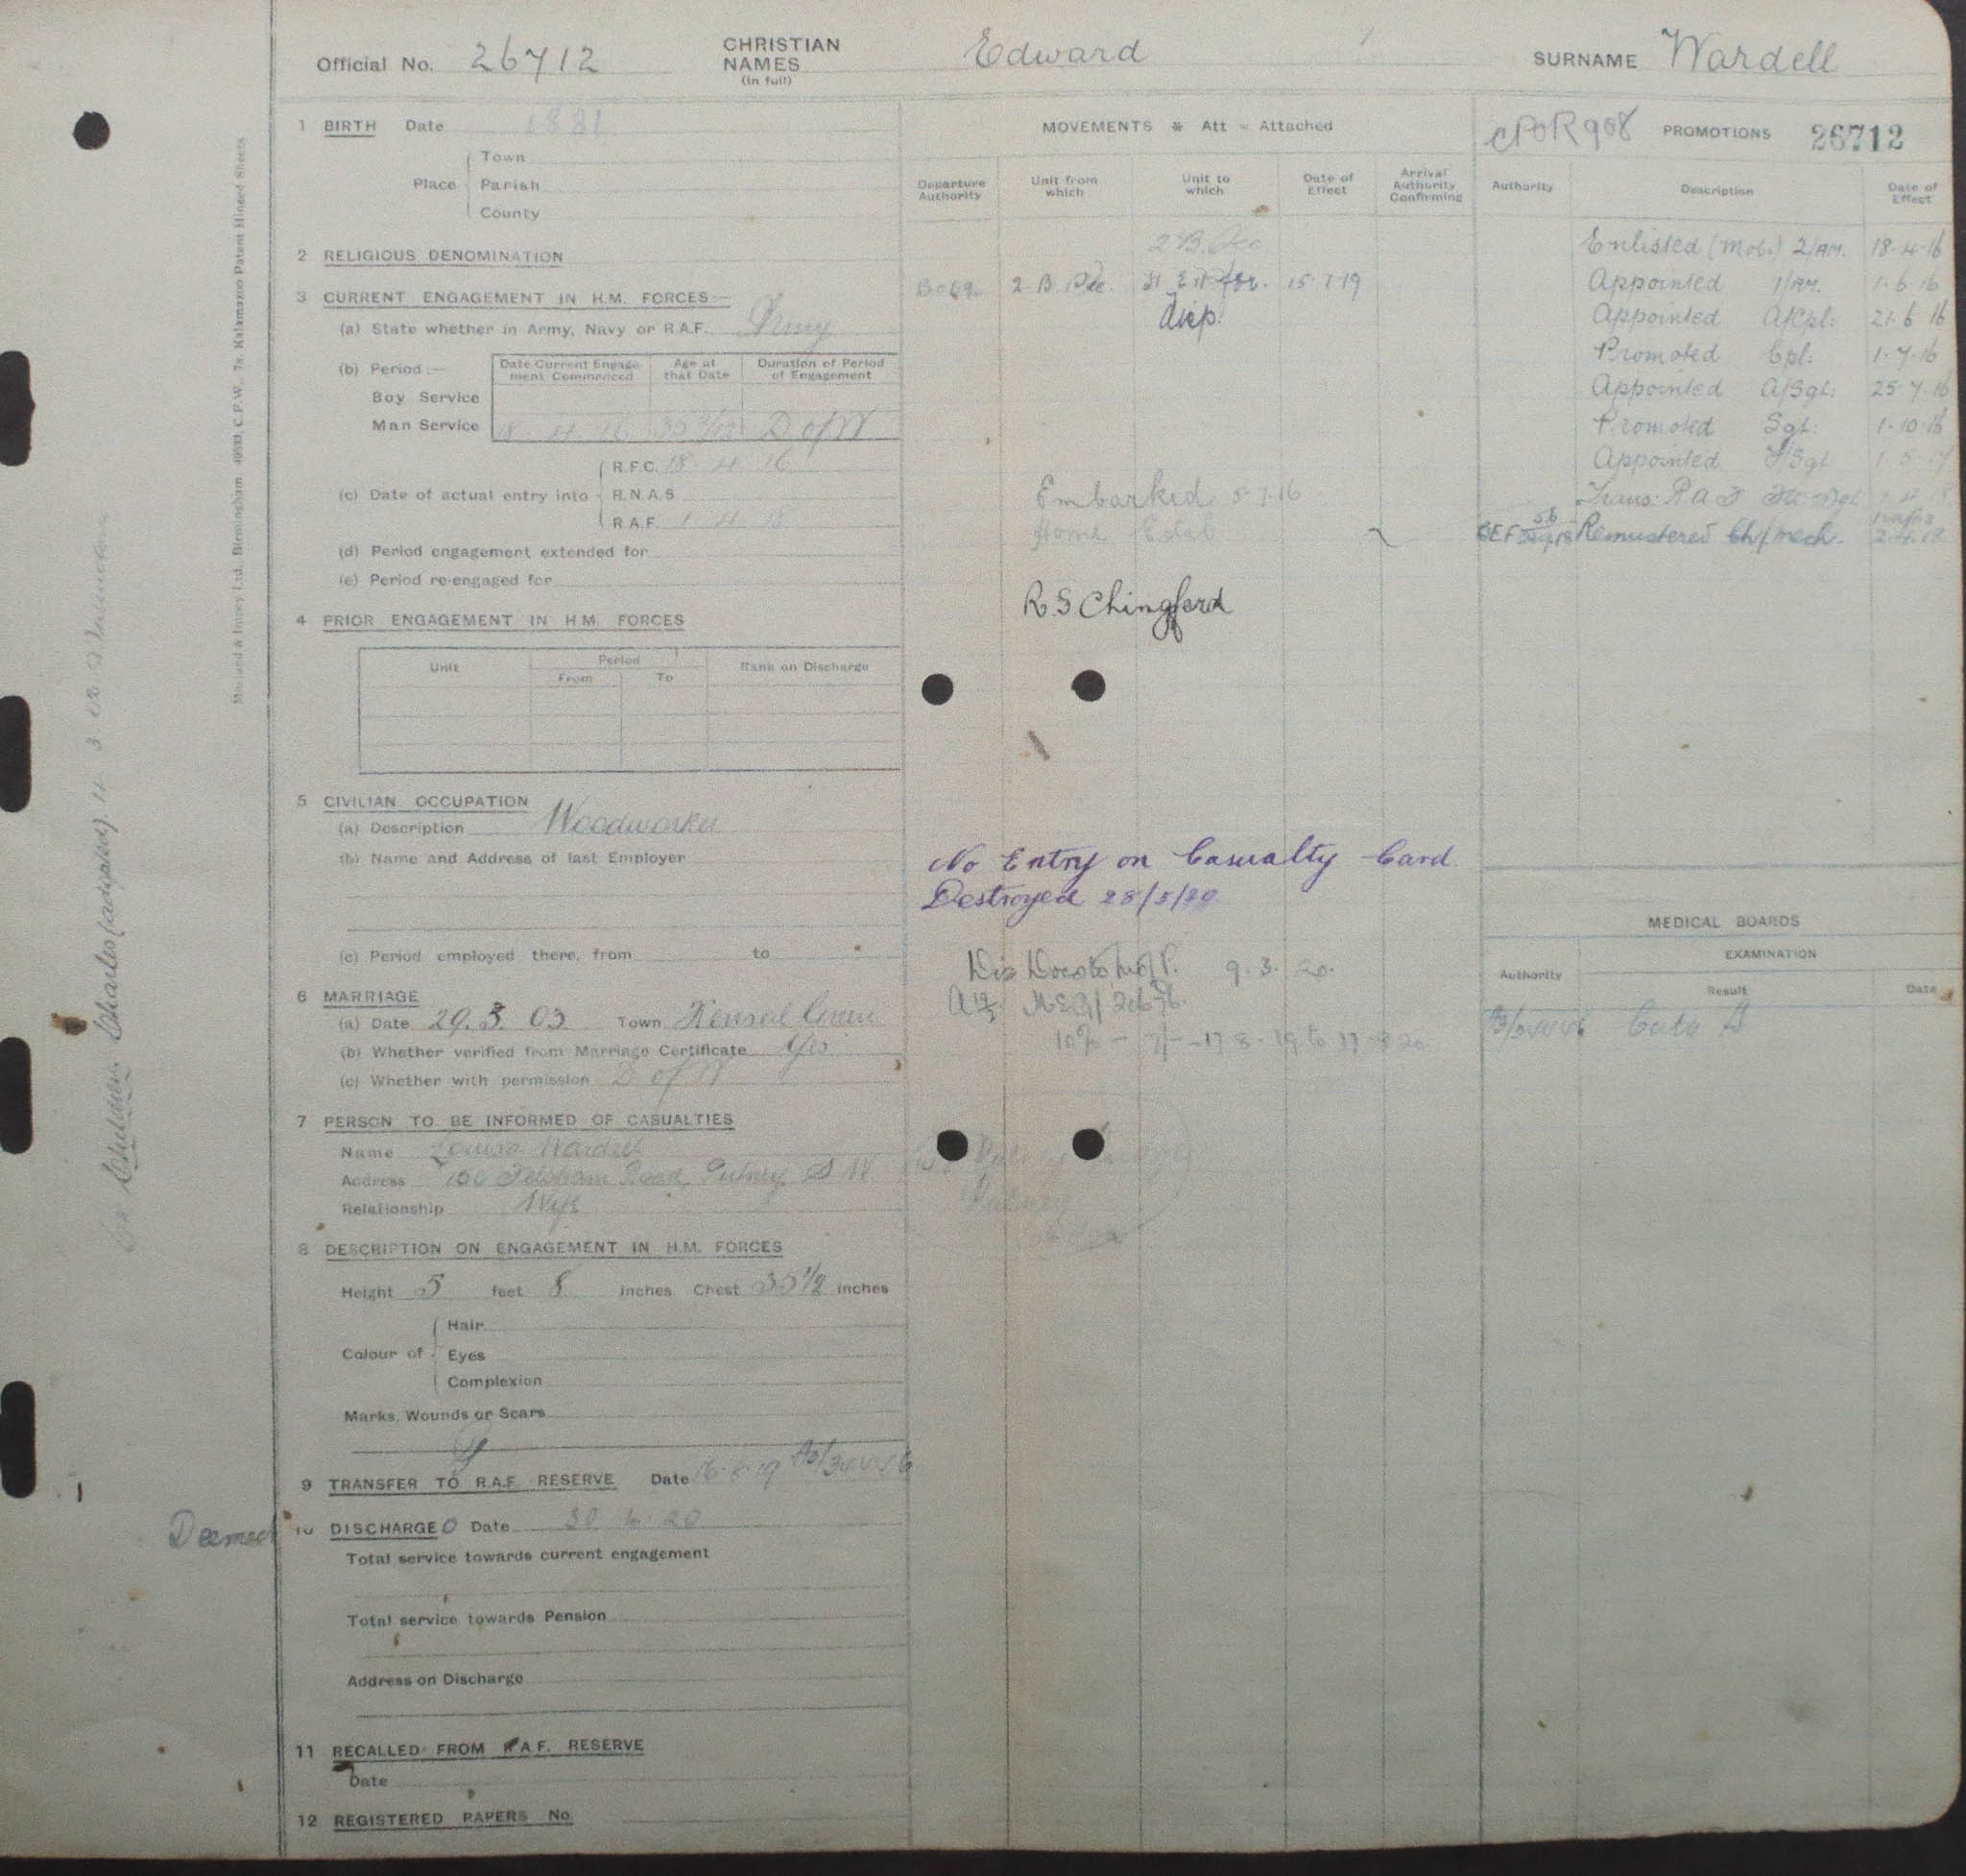 Official No. 26712 CHRISTIAN NAMES (in full) Edward SURNAME Wardell
1 BIRTH Date 1881
Place Town
Parish
County
2 RELIGIOUS DENOMINATION
3 CURRENT ENGAGEMENT IN H.M. FORCES:—
(a) State whether in Army, Navy or R.A.F. Army
(b) Period:— Date Current Engagement Commenced Age at that Date Duration of Period of Engagement
Boy Service
Man Service 18 4 16 35 D of W
(c) Date of actual entry into R.F.C. 18 4 16
R.N.A.S.
R.A.F. 1 4 18
(d) Period engagement extended for
(e) Period re-engaged for
4 PRIOR ENGAGEMENT IN H.M. FORCES
Unit Period Rank on Discharge
From To
5 CIVILIAN OCCUPATION
(a) Description Woodworker
(b) Name and Address of last Employer
(c) Period employed there, from to
6 MARRIAGE
(a) Date 29. 3. 03 Town Kensal Green
(b) Whether verified from Marriage Certificate Yes
(c) Whether with permission D of W
7 PERSON TO BE INFORMED OF CASUALTIES
Name Louisa Wardell
Address 150 Felsham Road, Putney, S.W.
Relationship Wife
8 DESCRIPTION ON ENGAGEMENT IN H.M. FORCES
Height 5 feet 8 inches Chest 35 1/2 inches
Colour of Hair
Eyes
Complexion
Marks, Wounds or Scars
9 TRANSFER TO R.A.F. RESERVE Date 16·8·19
Deemed 10 DISCHARGED Date 30 · 4 · 20
Total service towards current engagement
Total service towards Pension
Address on Discharge
11 RECALLED FROM R.A.F. RESERVE
Date
12 REGISTERED PAPERS No.
MOVEMENTS * Att - Attached
Departure Authority Unit from which Unit to which Date of Effect Arrival Authority Confirming
2 B.
2 B. 15·7·19
disp.
Embarked 5·7·16
Home Estab
R.S Chingford
No Entry on Casualty Card
Destroyed 28/5/20
9. 3. 20.
Putney
PROMOTIONS 26712
Authority Description Date of Effect
Enlisted (Mob.) 2/AM. 18·4·16
Appointed 1/AM. 1·6·16
Appointed A/Cpl: 21·6·16
Promoted Cpl: 1·7·16
Appointed A/Sgt: 25·7·16
Promoted Sgt: 1·10·16
Appointed F/Sgt 1·5·17
Trans: R A F
Remustered Ch/mech.
MEDICAL BOARDS
EXAMINATION
Authority Result Date
Children Charles (adopted)
Morland & Impey Ltd. Birmingham. Kalamazoo Patent Hinged Sheets